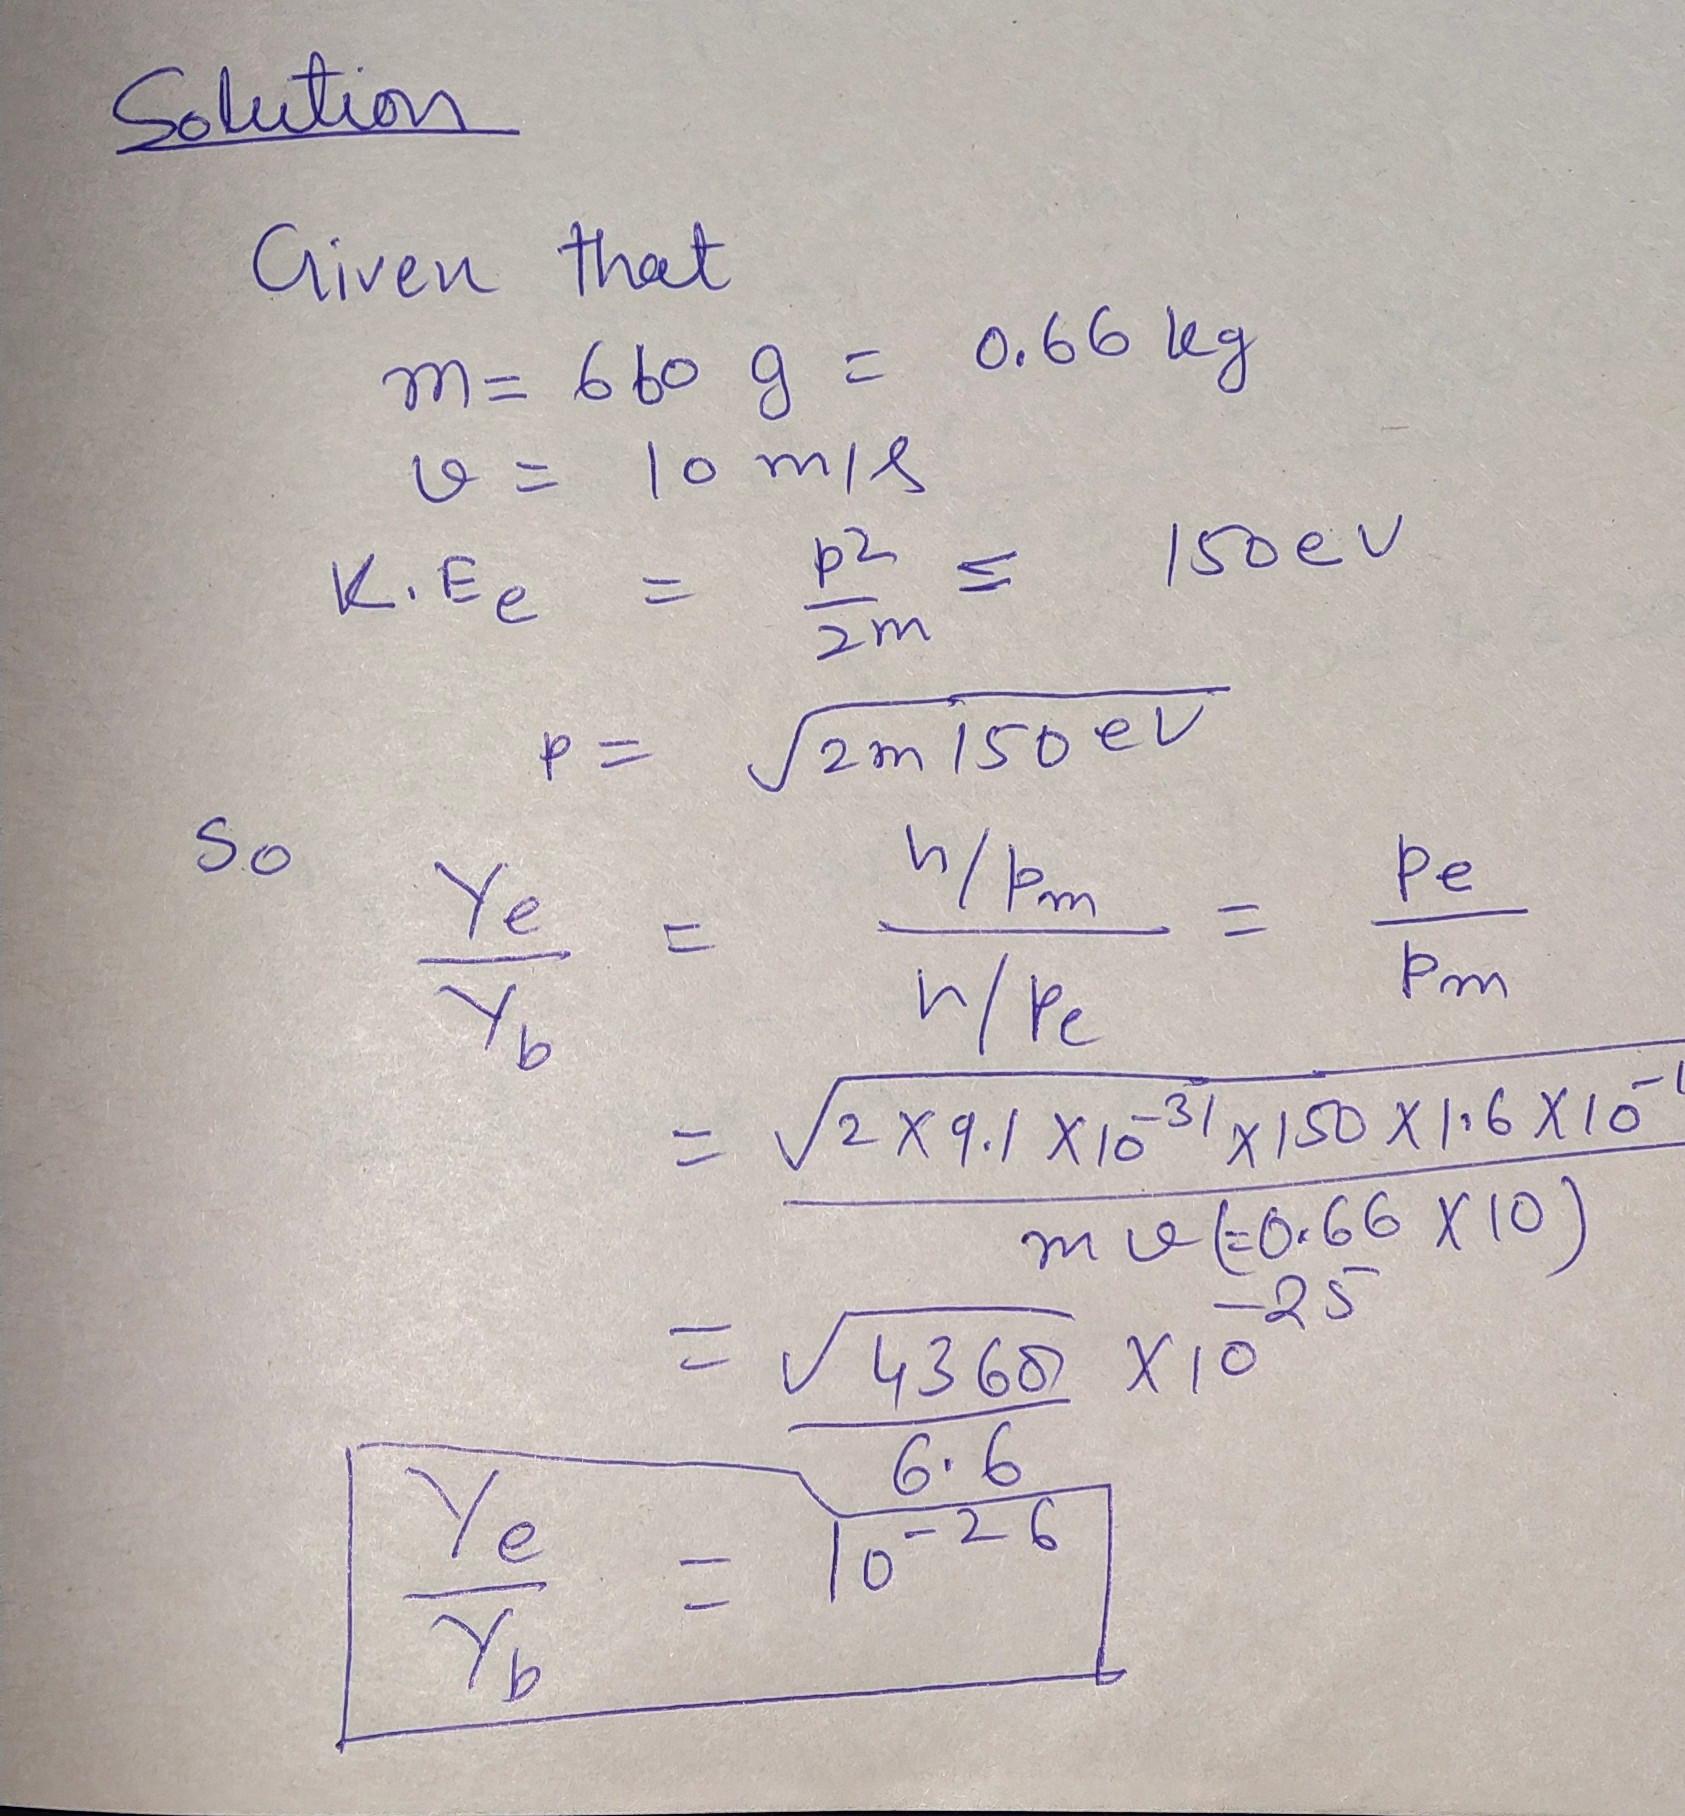 Solution
Given that
m = 660 g = 0.66 kg
v = 10 m/s
K.Ee = p2/2m = 150 eV
p = √2m 150 eV
So Ye/Yb = h/pm / h/pe = pe/pm
= √2 X 9.1 X 10^-31 X 150 X 1.6 X 10^-1 / m v (=0.66 X 10)
= √4368 / 6.6 X 10^-25
Ye/Yb = 10^-26